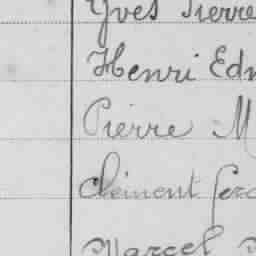 Yves Pierre
Henri Edm
Pierre M
Clément
Marcel